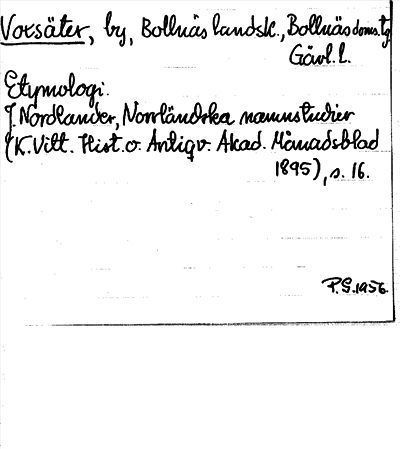 Voxsäter, by, Bollnäs landsk., Bollnäs doms. tg
Gävl. l.
Etymologi.
J. Nordlander, Norrländska namnstudier
(K. Vitt. Hist. o. Antiqv. Akad. Månadsblad
1895), s. 16.
P.G. 1956.